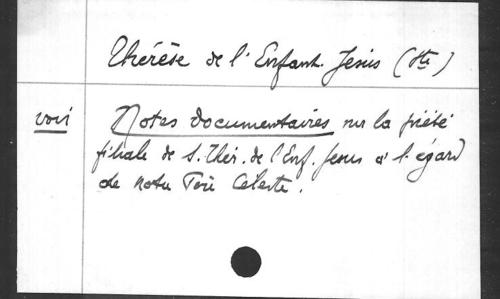 Thérèse de l'Enfant Jésus (Ste)
voir Notes documentaires sur la piété
filiale de S. Thér. de l'Enf. Jesus à l'égard
de notre Père Céleste.